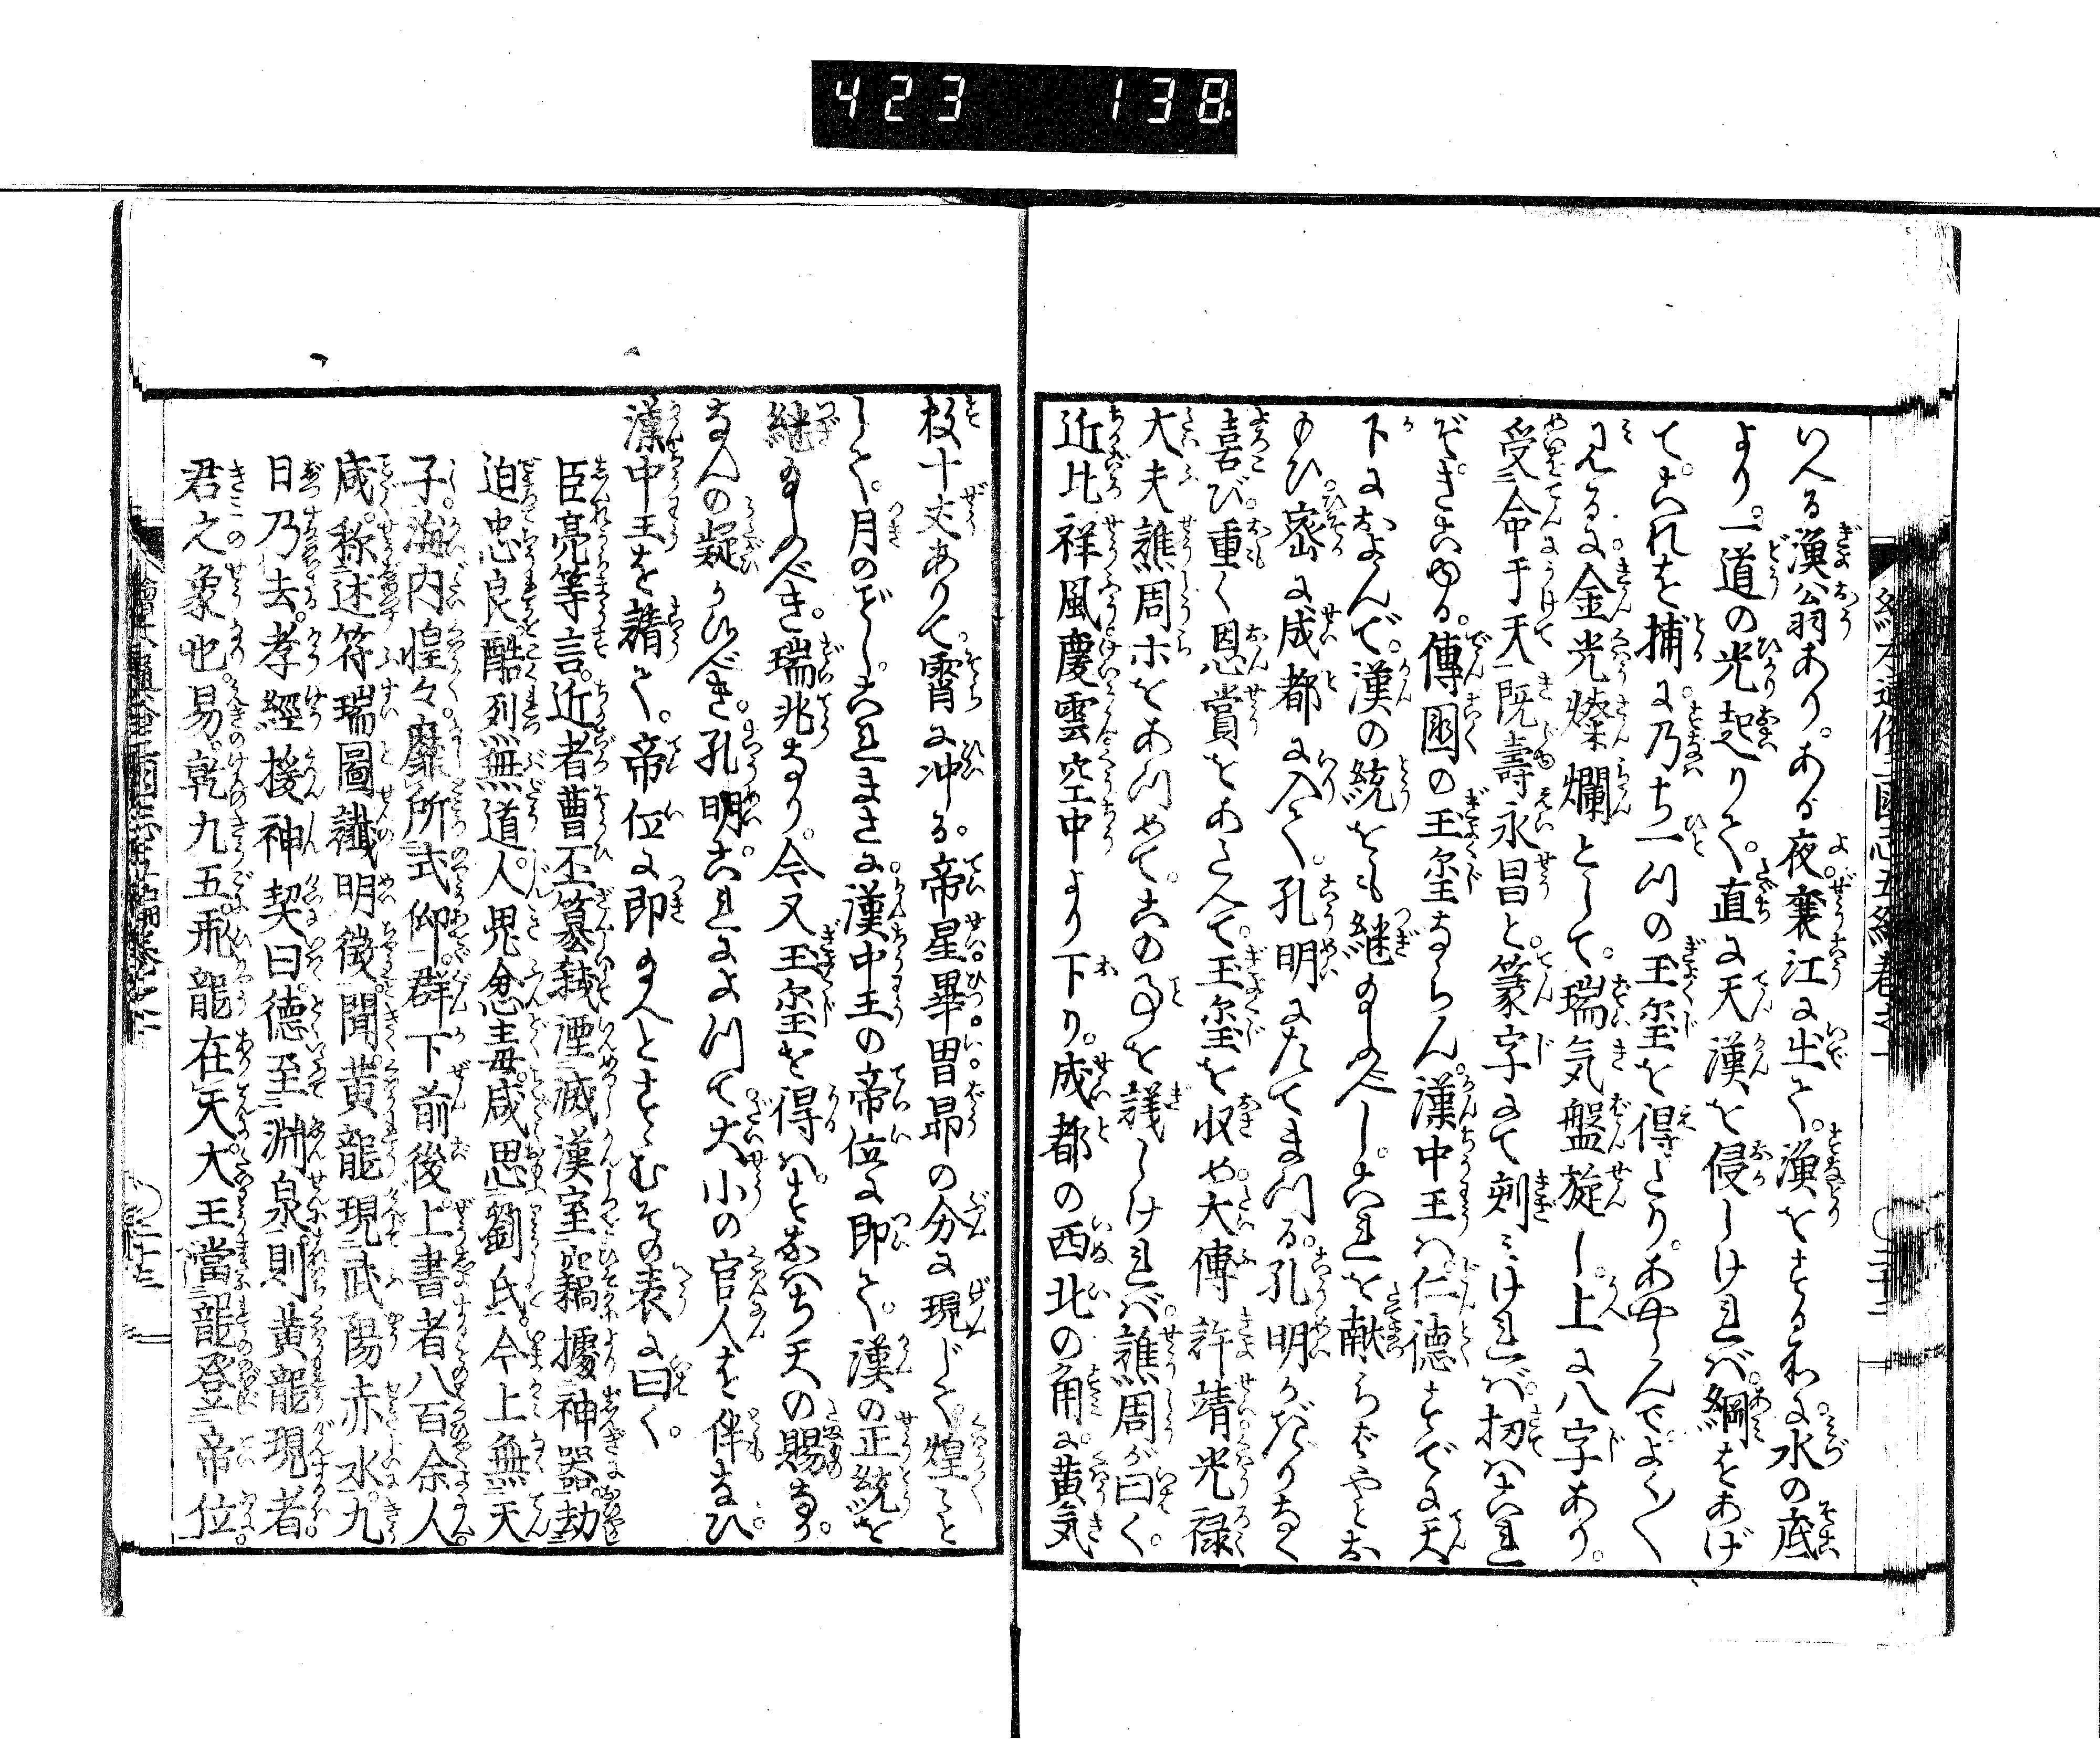 423 138
いへる漁翁あり。ある夜襄江に出て。漁をする和に水の底
より。一道の光起りて。直に天漢を侵しければ。綱をあげ
て。これを捕に。乃ち一つの玉璽を得たり。あやしんでよく〳〵
見るに。金光燦爛として。瑞気盤旋し。上に八字あり。
受命于天既壽永昌と。篆字にて刻みければ。扨はこれ
ぞきこゆる。傳國の玉璽ならん。漢中王は。仁徳すでに天
下におよんで。漢の統をも継玉ふべし。これを献らばやとお
もひ。密に成都に入て。孔明にたてまつる。孔明かぎりなく
喜び。重く恩賞をあたへて。玉璽を収め。大傅許靖光禄
大夫譙周ホをあつめて。この事を議しければ。譙周が曰く。
近比祥風慶雲空中より下り。成都の西北の角に黄気
数十丈ありて。霄に冲る。帝星畢胃昴の分に現じて。煌々と
して。月のごとし。これまさに。漢中王の帝位に即て。漢の正統を
継玉ふべき。瑞兆なり。今又玉璽を得は。すなはち天の賜なり。
なんの疑かあるべき。孔明これによつて。大小の官人を伴なひ。
漢中王を請て。帝位に即玉へとすゝむ。その表に曰く。
臣亮等言。近者曹丕簒弑湮滅漢室竊據神器。劫
迫忠良酷烈無道。人鬼忿毒。咸思劉氏。今上無天
子。海内惶々靡所式仰。群下前後上書者八百余人。
咸。称述符瑞圖讖明徴。聞。黄龍現武陽赤水。九
日乃去。孝經援神契曰。徳至淵泉。則黄龍現者。
君之象也。易。乾九五。飛龍在天。大王當龍登帝位。